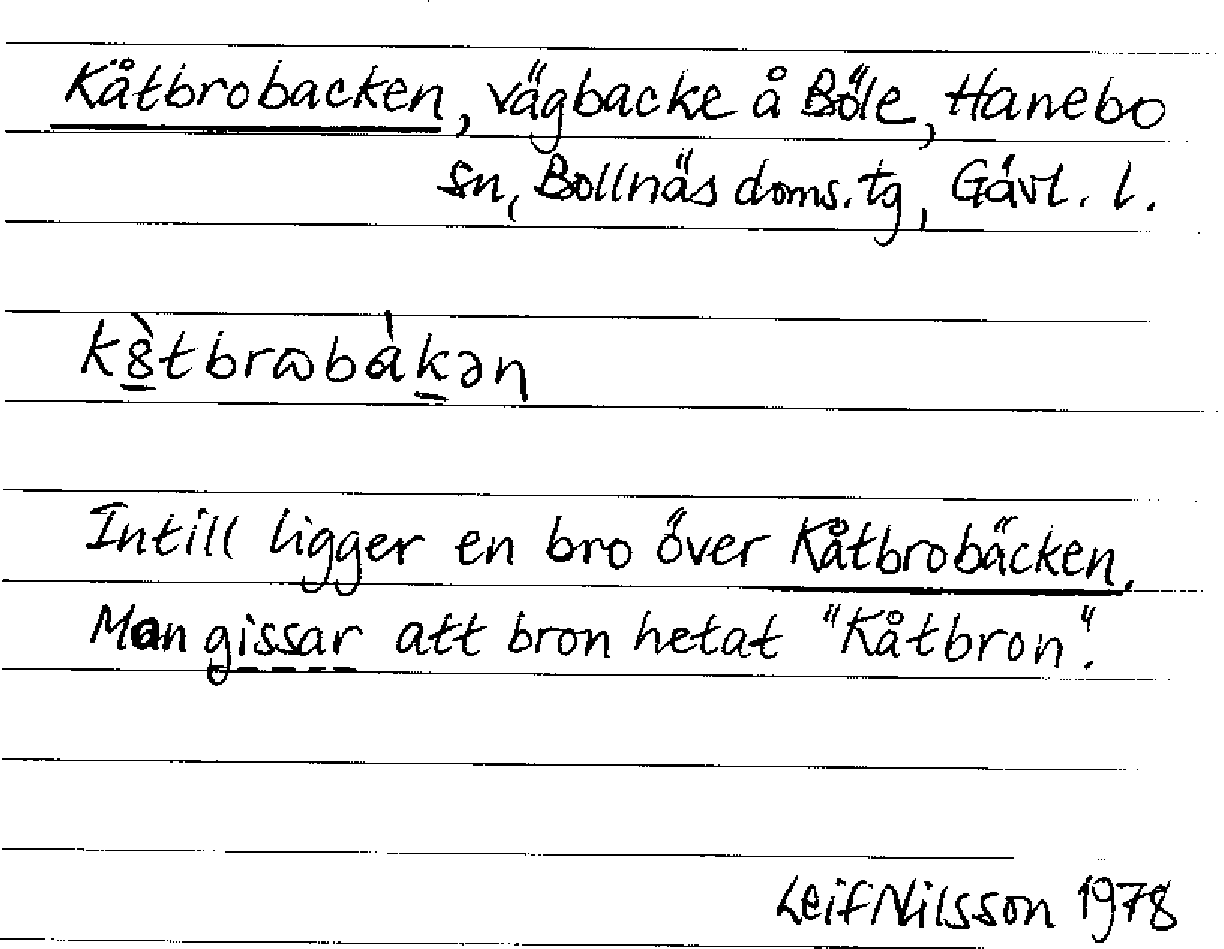 Kåtbrobacken, vägbacke å Böle, Hanebo
sn, Bollnäs doms.tg, Gävl. l.
k8̱̀tbrɷbàḵən
Intill ligger en bro över Kåtbrobäcken.
Man gissar att bron hetat "Kåtbron".
Leif Nilsson 1978